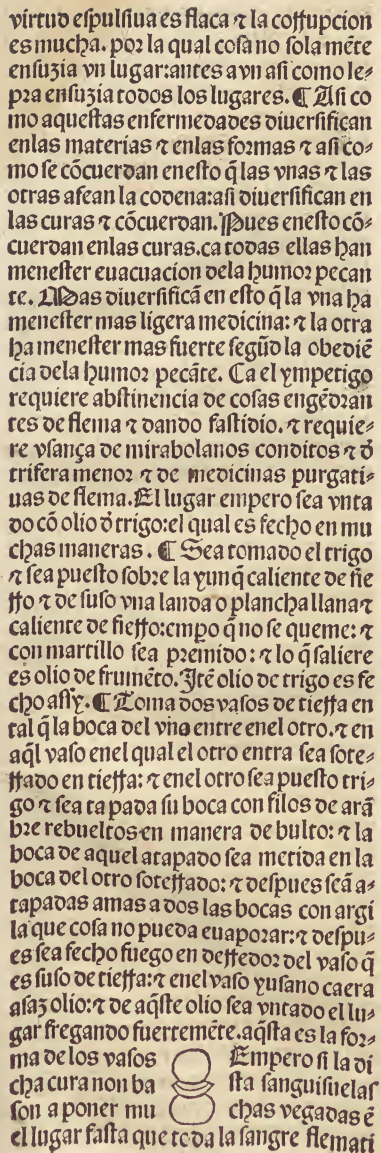 virtud eſpulſiua es flaca ⁊ la corrupcion
es mucha. por la qual coſa no ſola mēte
enſuzia vn lugar:antes avn aſi como le⸗
pra enſuzia todos los lugares. ¶ Aſi co
mo aqueſtas enfermedades diuerſifican
enlas materias ⁊ enlas formas ⁊ aſi co⸗
mo ſe cōcuerdan eneſto q̄ las vnas ⁊ las
otras afean la codena:aſi diuerſifican en
las curas ⁊ cōcuerdan. Pues eneſto cō⸗
cuerdan enlas curas.ca todas ellas han
meneſter euacuacion dela humor pecan
te. Mas diuerſificā en eſto q̄ la vna ha
meneſter mas ligera medicina: ⁊ la otra
ha meneſter mas fuerte ſegūd la obediē
cia dela humor pecāte. Ca el ympetigo
requiere abſtinencia de coſas engēdran
tes de flema ⁊ dando faſtidio. ⁊ requie⸗
re vſança de mirabolanos conditos ⁊ đ
trifera menor ⁊ de medicinas purgati⸗
uas de flema. El lugar empero ſea vnta
do cō olio đ trigo:el qual es fecho en mu
chas maneras. ¶ Sea tomado el trigo
⁊ ſea pueſto ſobre la yunq̄ caliente de fie
rro ⁊ de ſuſo vna landa o plancha llana ⁊
caliente de fierro:empo q̄ no ſe queme: ⁊
con martillo ſea premido: ⁊ lo q̄ ſaliere
es olio de frumēto. Itē olio de trigo es fe
cho aſſy. ¶ Toma dos vaſos de tierra en
tal q̄ la boca del vno entre enel otro. ⁊ en
aq̄l vaſo enel qual el otro entra ſea ſote⸗
rrado en tierra: ⁊ enel otro ſea pueſto tri⸗
go ⁊ ſea ta pada ſu boca con filos de arā
bre rebueltos en manera de bulto: ⁊ la
boca de aquel atapado ſea metida en la
boca del otro ſoterrado: ⁊ deſpues ſeā a⸗
tapadas amas a dos las bocas con argi
la que coſa no pueda euaporar:⁊ deſpu⸗
es ſea fecho fuego en derredor del vaſo q̄
es ſuſo de tierra:⁊ enel vaſo yuſano caera
aſaz olio:⁊ de aq̄ſte olio ſea vntado el lu⸗
gar fregando fuertemēte.aq̄ſta es la for⸗
ma de los vaſos Empero ſi la di
cha cura non ba ſta ſanguiſuelas
ſon a poner mu chas vegadas ē
el lugar faſta que toda la ſangre flemati